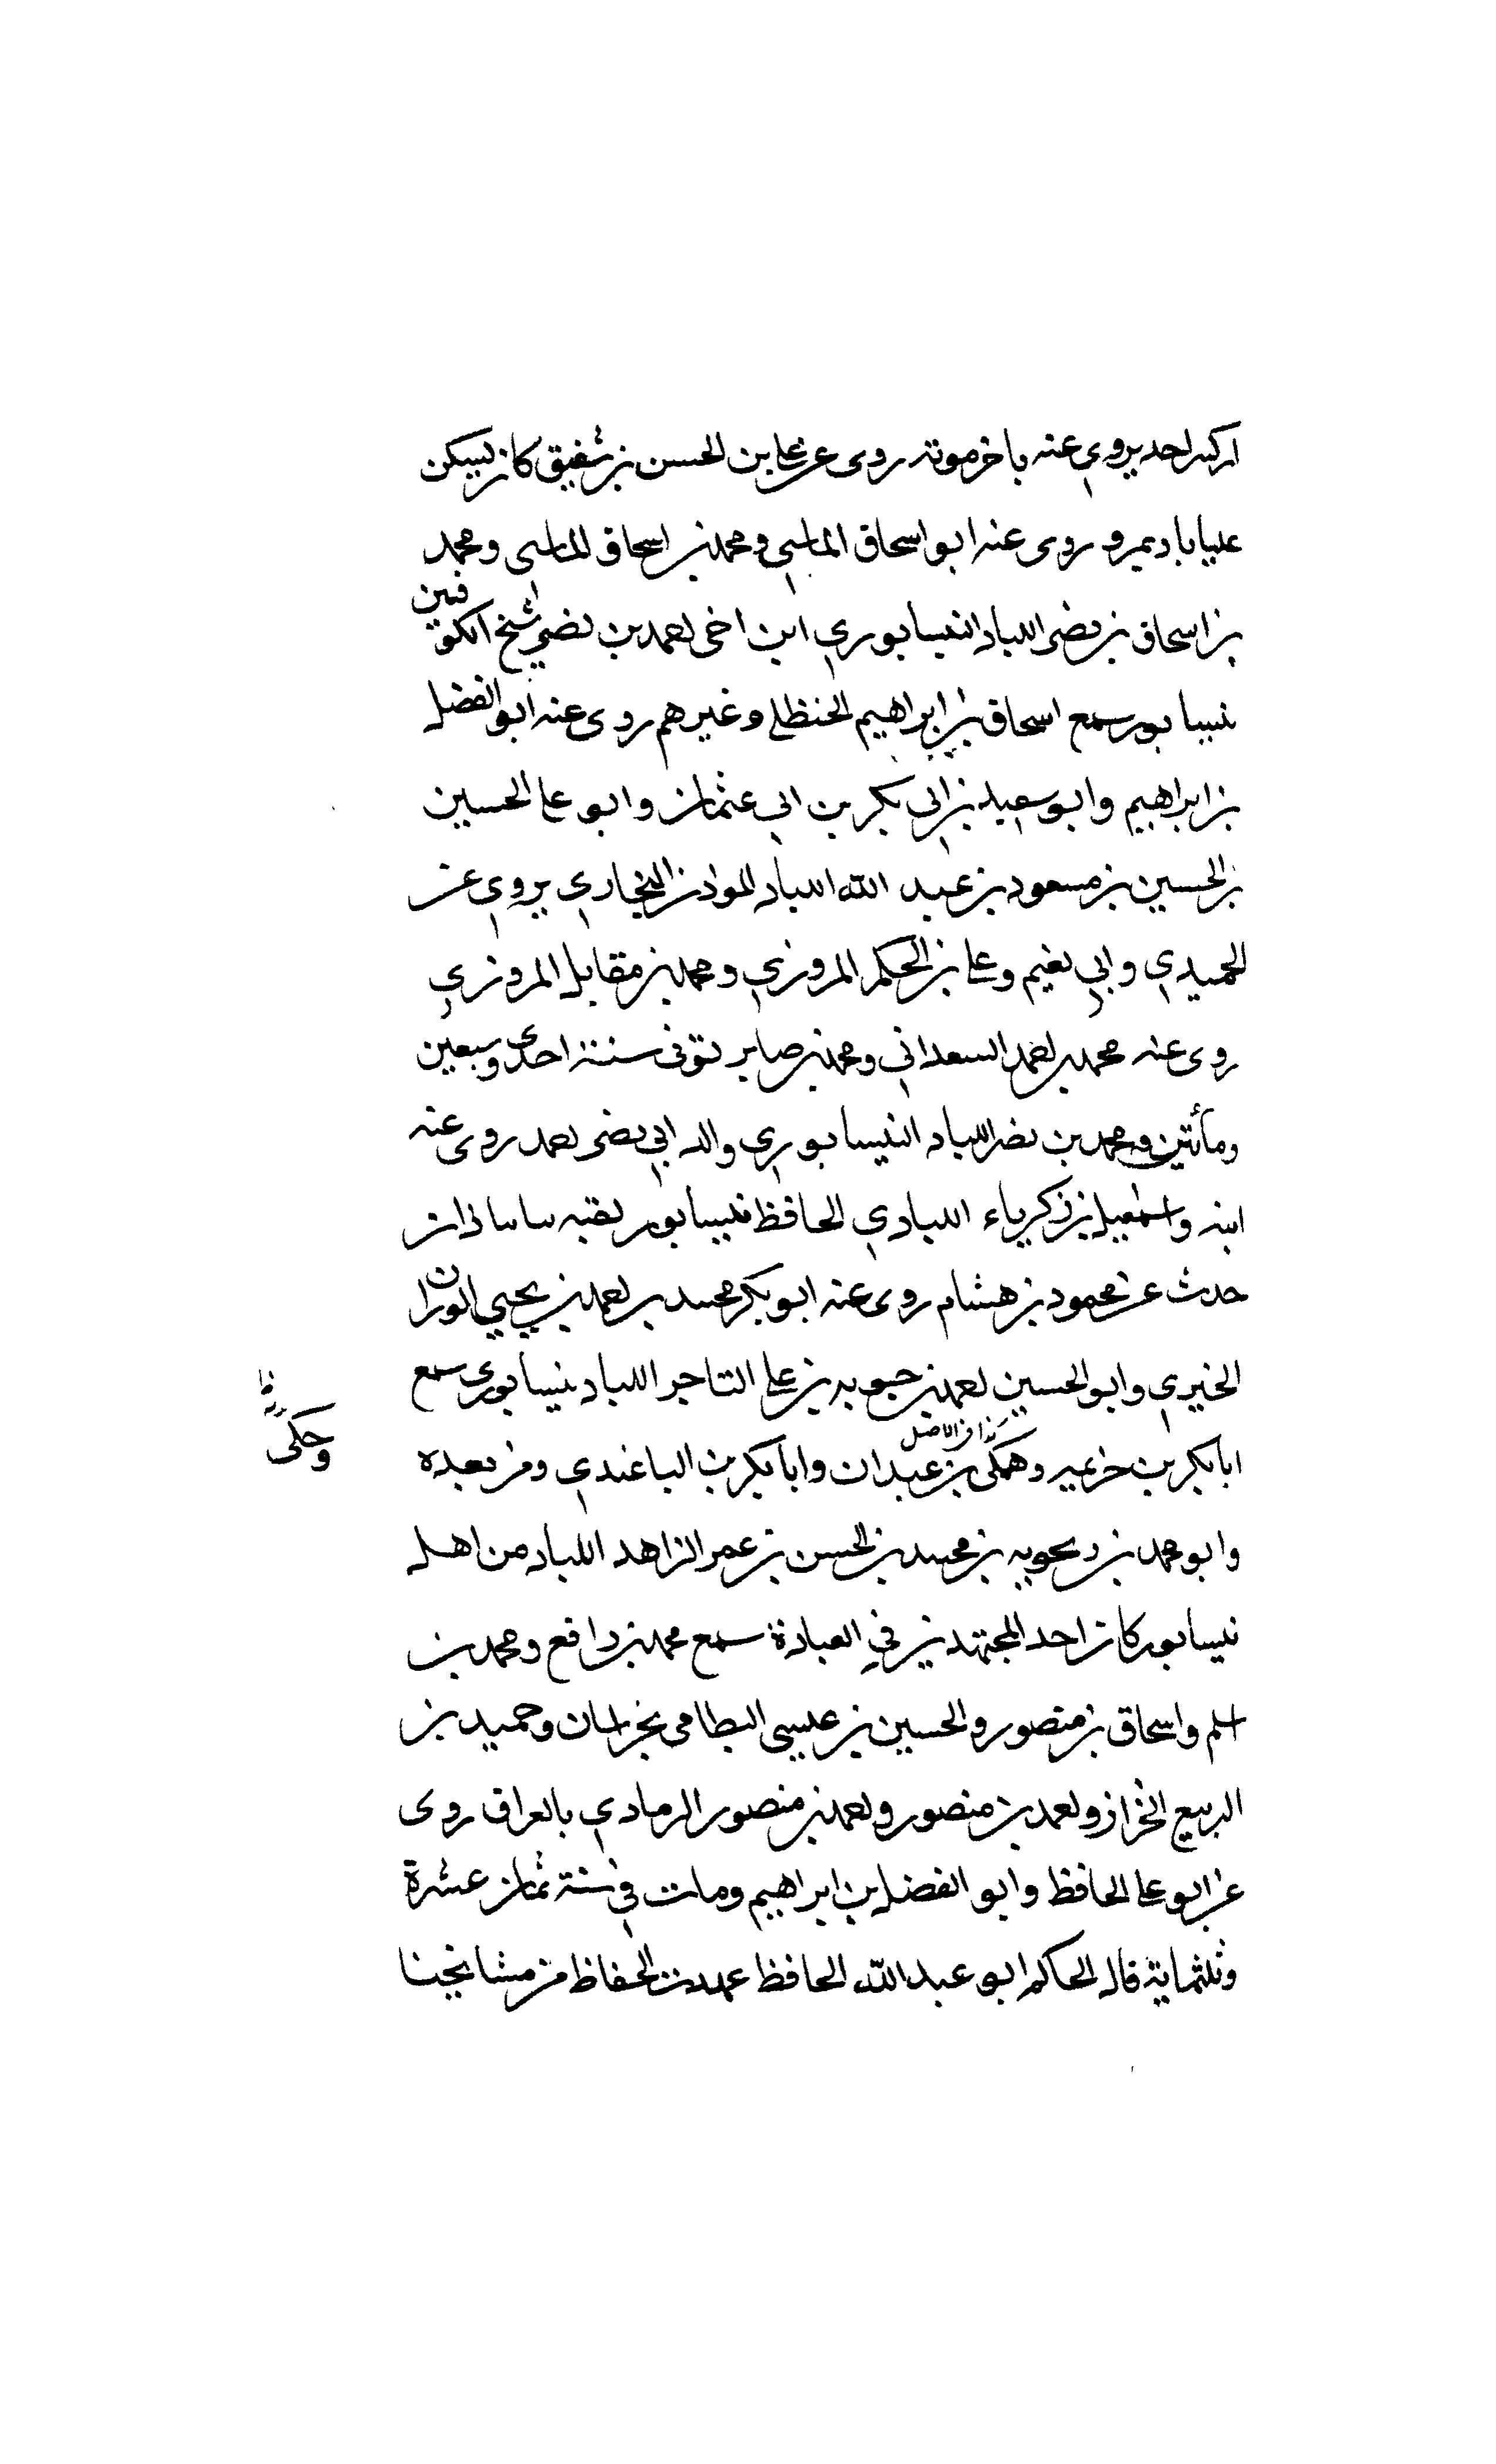 ادركت احدا يروي عنه باخر موته روى عن علي بن الحسن بن شقيق كان يسكن
علياباد بمرو روى عنه ابو اسحاق الماسي ومحمد بن اسحاق الماسى ومحمد
بن اسحاق بن نصر اللباد النيسابوري ابن اخى احمد بن نصر شيخ الكوفيين
بنيسابور سمع اسحاق بن ابراهيم الحنظلي وغيرهم روى عنه ابو الفضل
بن ابراهيم وابو سعيد بن ابي بكر بن ابي عثمان وابو علي الحسين
بن الحسين بن مسعود بن عبد الله اللباد الموذن البخاري يروي عن
الحميدي وابي نعيم وعلي بن الحكم المروزي ومحمد بن مقاتل المروزي
روى عنه محمد بن احمد السعداني ومحمد بن صابر توفى سنة احدى وسبعين
ومأتين ومحمد بن نصر اللباد النيسابوري والد ابي نصر احمد روى عنه
ابنه واسمعيل بن زكرياء اللبادي الحافظ نيسابور لقبه
حدث عن محمود بن هشام روى عنه ابو بكر محمد بن احمد بن يحيى الوزان
الخيري وابو الحسين احمد بن حبويه بن علي التاجر اللباد نيسابوري سمع
كذا في الاصل
ابا بكر بن خزيمه وهمكى بن عبدان وابا بكر بن الباغندي ومن بعده
وحكى
وابو محمد بن محمد بن الحسن بن عمر الزاهد اللباد من اهل
نيسابور كان احد المجتهدين في العبادة سمع محمد بن رافع ومحمد بن
اسلم واسحاق بن منصور والحسين بن عيسى البطامى بخراسان وحميد بن
الربيع الخزاز واحمد بن منصور واحمد بن منصور الرمادي بالعراق روى
عن ابو علي الحافظ وابو الفضل بن ابراهيم ومات في سنة ثمان عشرة
وثلثماية قال الحاكم ابو عبد الله الحافظ الحفاظ من مشايخنا